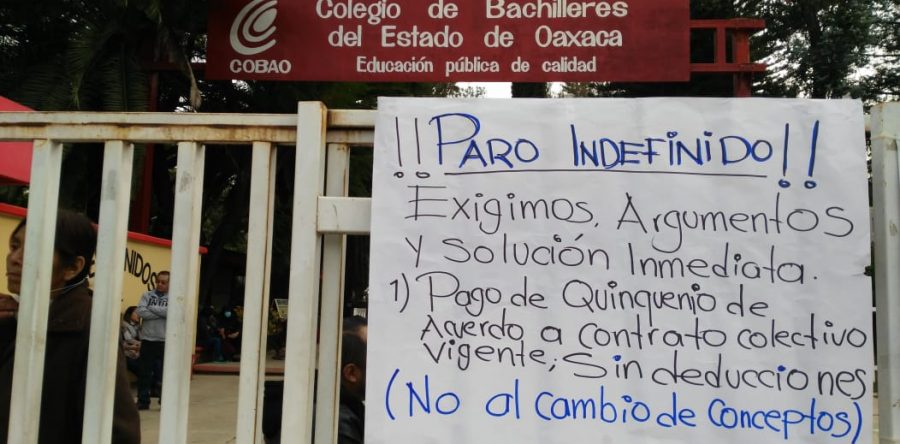 Colegio de Bachilleres
del Estado de Oaxaca
COBAO
Educación pública de calidad
¡¡PARO INDEFINIDO!!
Exigimos, Argumentos
y Solución Inmediata.
1) Pago de Quinquenio de
Acuerdo a contrato colectivo
vigente; Sin deducciones
(No al cambio de conceptos)
NIDOS